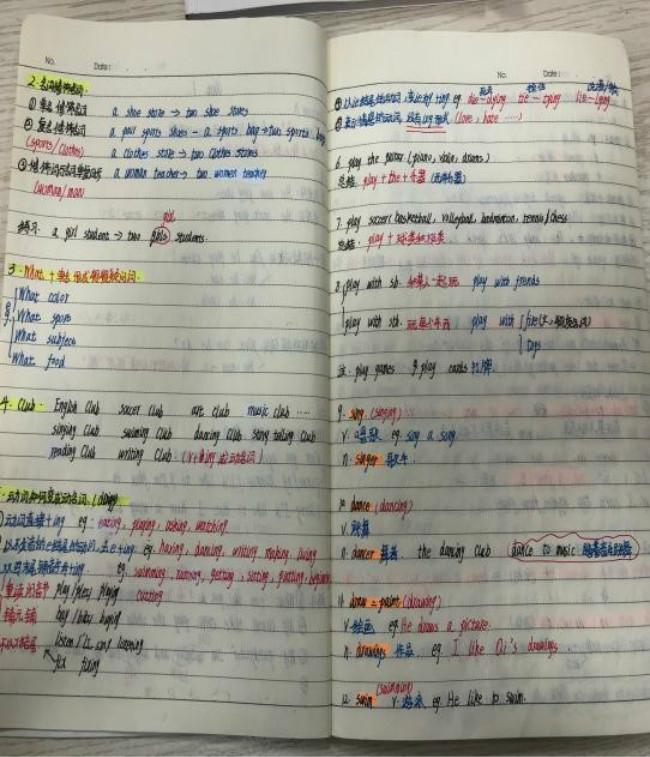 No.
Date:
2. 名词修饰名词.
① 单名修饰名词 a shoe store → two shoe stores
② 复名修饰名词 a pair sports shoes - a sports bag → two sports bags
(sports/clothes) a clothes store → two clothes stores
a woman teacher → two women teacher
(woman/man)
girl
练习: a girl student → two girls students.
3. What + 名
What color
What sport
What subject
What food
4. Club. English Club soccer club art club music club ......
singing Club swimming Club dancing Club story telling Club
reading Club writing Club. (v+ing 动名词)
动词如何变成动名词. (doing)
动词直接+ing eg: eating, playing, asking, watching
以不发音的e结尾的动词, 去e+ing. eg. having, dancing, writing making, living
eg. swimming, running, getting, sitting, putting, beginning
cutting
重读闭音节 play/pleɪ/ playing
辅元辅 buy/baɪ/ buying
listening
fix fixing
No.
Date:
④ 以ie结尾的动词, 变ie为y+ing eg die-dying tie-tying lie-lying
(love, hate ......)
6. play the guitar (piano, violin, drums)
总结: play + the + 乐器 (西洋乐器)
7. play soccer, basketball, volleyball, badminton, tennis/chess
总结: play + 球类和棋类
8. play with sb. 和某人一起玩 play with friends
play with sth. 玩某个东西 play with fire
toys
注: play games play cards 打牌.
9. sing. (singing)
v. 唱歌 eg. sing a song
n. singer 歌手.
10. dance (dancing)
v. 跳舞
n. dancer 舞者 the dancing club dance to music 随着音乐跳舞
11. draw = paint. (drawing)
v. 绘画 eg. He draws a picture.
n. drawings 作品 eg I like Qi's drawings.
12. swim (swimming) v. 游泳 eg He like to swim.